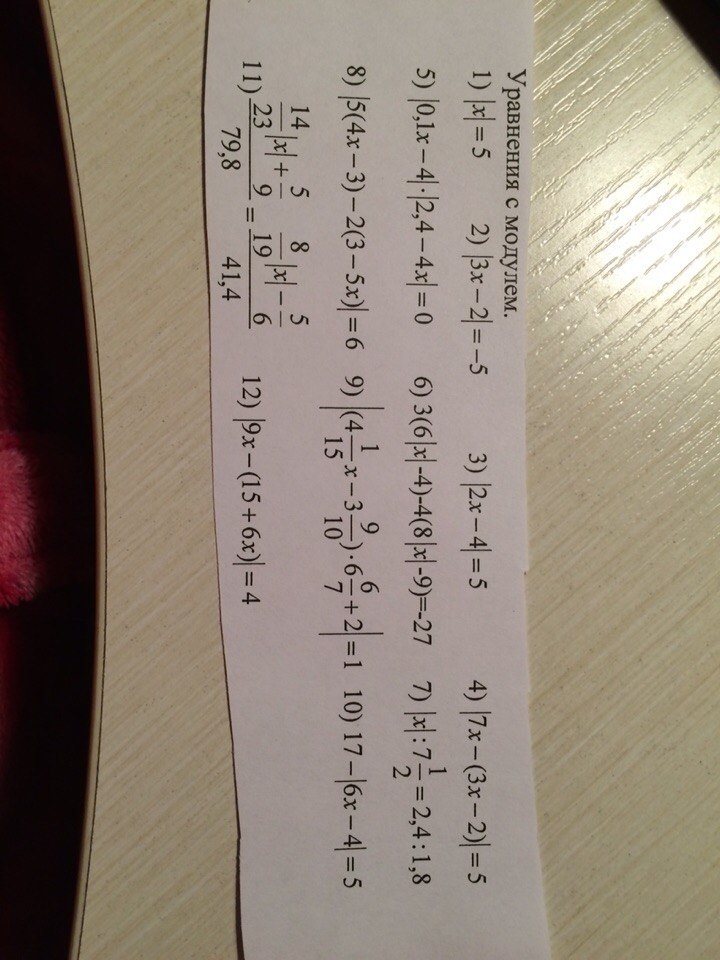 Уравнения с модулем.
1) |x| = 5 2) |3x − 2| = −5 3) |2x − 4| = 5 4) |7x − (3x − 2)| = 5
5) |0,1x − 4|·|2,4 − 4x| = 0 6) 3(6|x|-4)-4(8|x|-9)=-27 7) |x| : 7 1/2 = 2,4 : 1,8
8) |5(4x − 3) − 2(3 − 5x)| = 6 9) |(4 1/15 x − 3 9/10)·6 6/7 + 2| = 1 10) 17 − |6x − 4| = 5
11) (14/23 |x| + 5/9)/79,8 = (8/19 |x| − 5/6)/41,4 12) |9x − (15 + 6x)| = 4